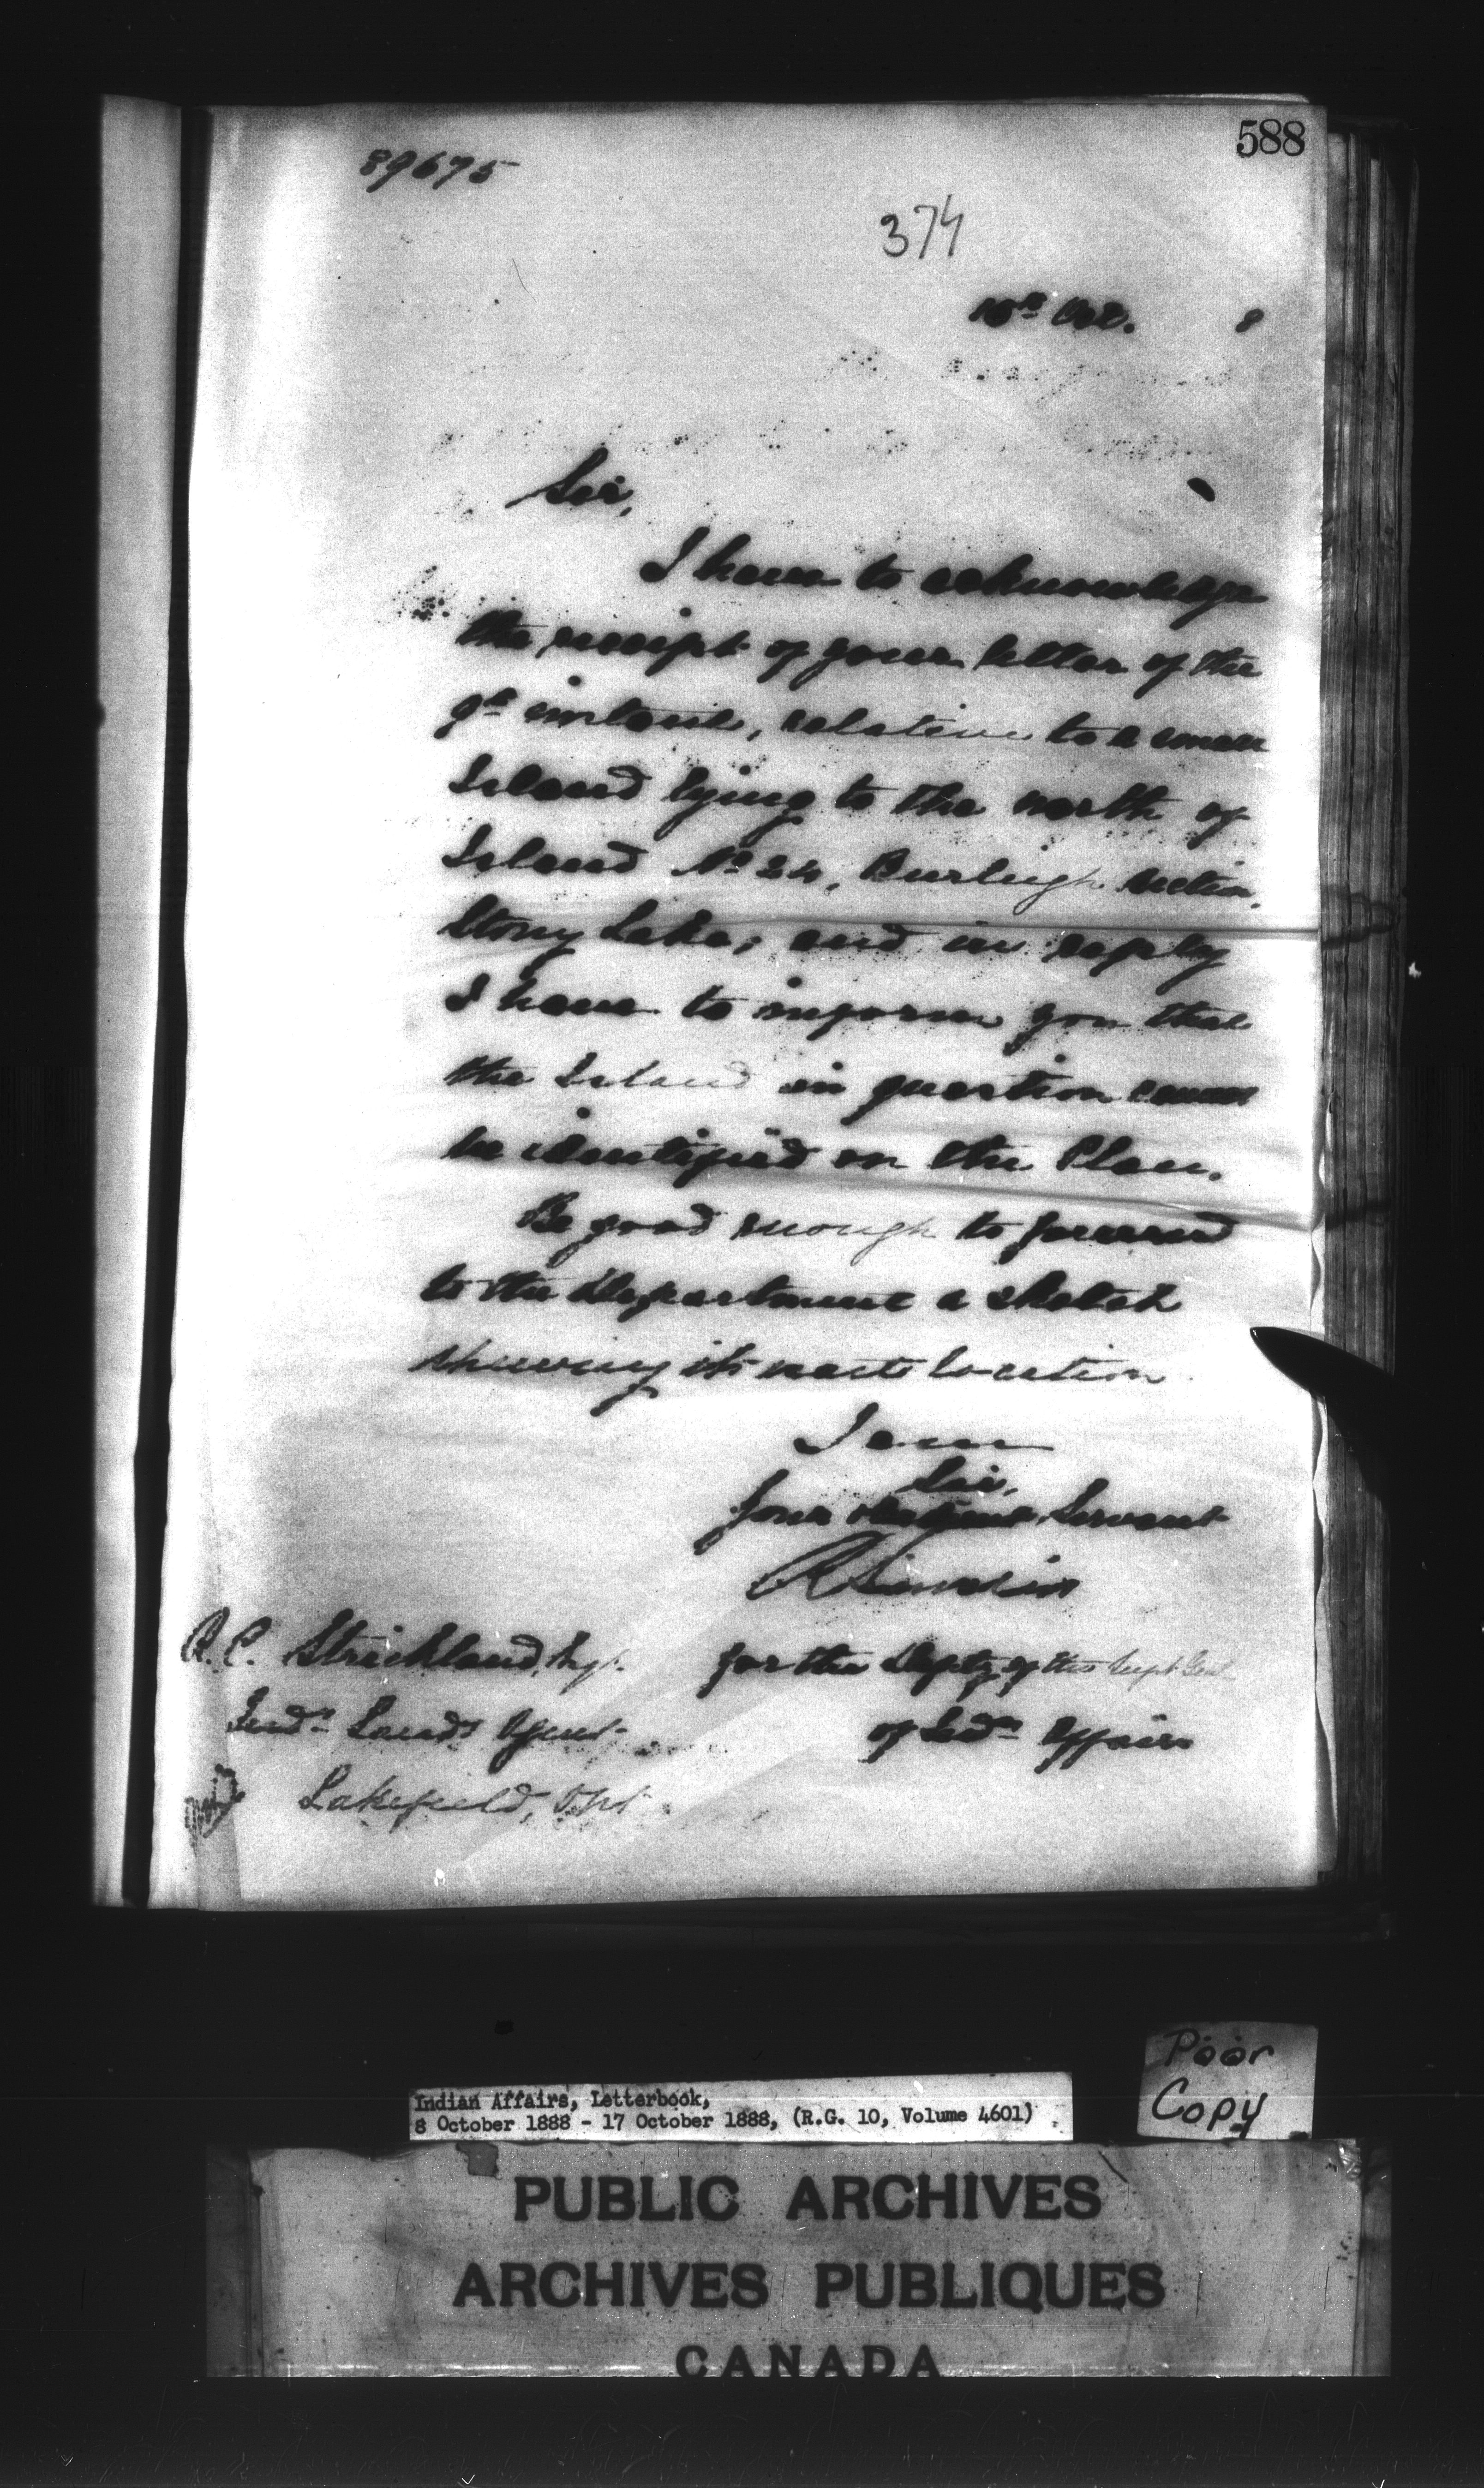 588
89675
374
Oct. 8
Sir,
I have to acknowledge
the receipt of your letter of the
9th instant, relative to a small
Island lying to the north of
Island No 24, Burleigh section,
Stony Lake; and in reply
I have to inform you that
the Island in question cannot
be identified on the Plan.
Be good enough to forward
to the Department a sketch
shewing its exact location
I am
Sir,
Your obedient Servant
R Sinclair
R. C. Strickland, Esq. for the Depty of the Supt Genl
Indn Lands Agent of Indn Affairs
Lakefield, Ont
Poor
Copy
Indian Affairs, Letterbook,
8 October 1888 - 17 October 1888, (R.G. 10, Volume 4601)
PUBLIC ARCHIVES
ARCHIVES PUBLIQUES
CANADA